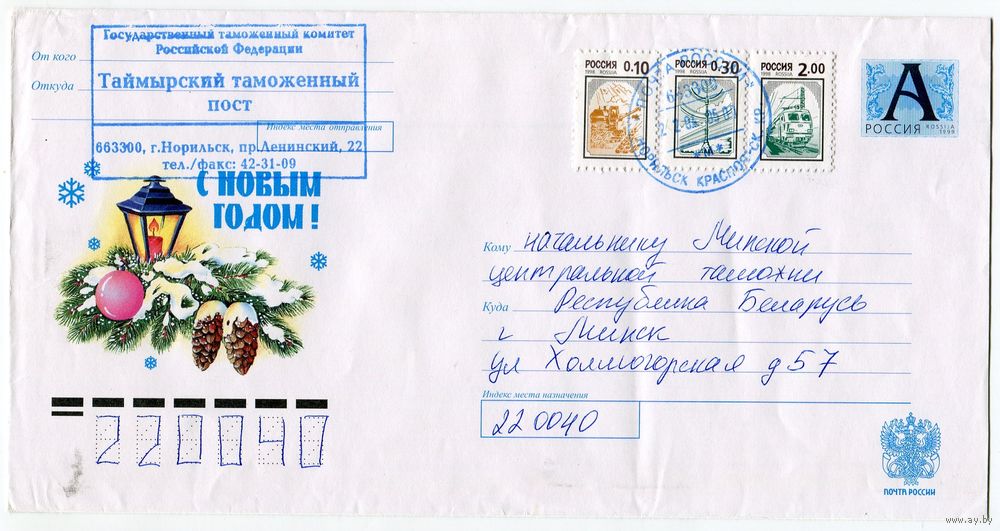 Государственный таможенный комитет
Российской Федерации
От кого
Откуда
Таймырский таможенный
пост
Индекс места отправления
663300, г.Норильск, пр.Ленинский, 22
тел./факс: 42-31-09
С НОВЫМ
ГОДОМ!
РОССИЯ 0.10
1998 ROSSIJA
РОССИЯ 0.30
1998 ROSSIJA
РОССИЯ 2.00
1998 ROSSIJA
НОРИЛЬСК КРАСНОЯРСК
А
РОССИЯ ROSSIJA
1999
Кому начальнику Минской
центральной таможни
Куда Республика Беларусь
г Минск
ул Холмогорская д 57
Индекс места назначения
220040
220040
ПОЧТА РОССИИ
www.ay.by